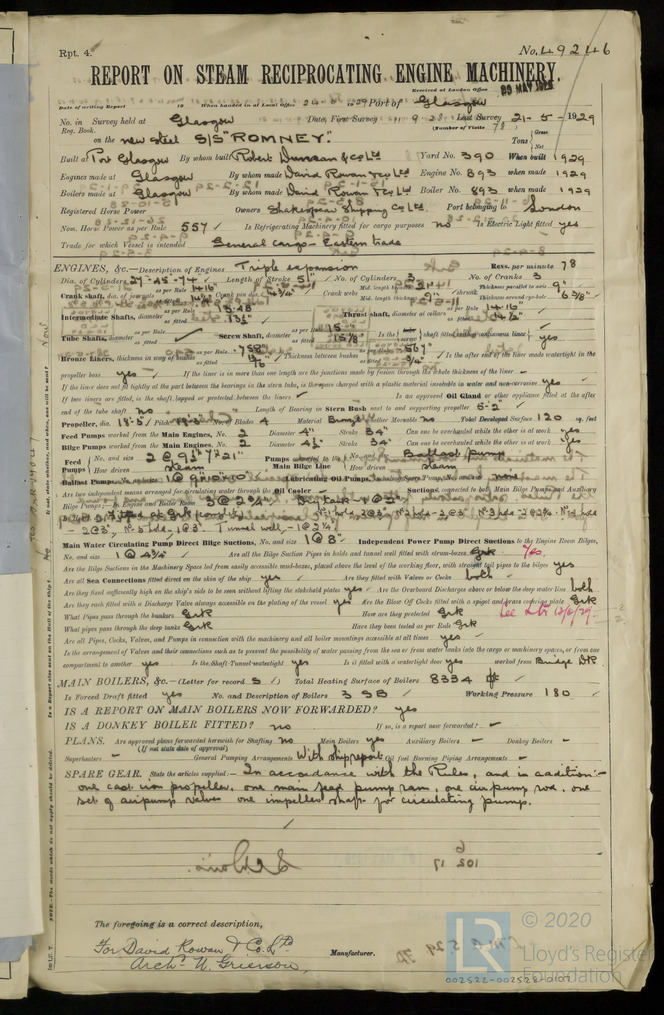 Rpt. 4.
No. 49246
REPORT ON STEAM RECIPROCATING ENGINE MACHINERY.
Received at London Office 29 MAY 1929
Date of writing Report 19 When handed in at Local Office 24-5-1929 Port of Glasgow
No. in Survey held at Glasgow Date, First Survey 11-9-28 Last Survey 21-5-1929
Reg. Book. (Number of Visits 78)
on the new steel S/S "ROMNEY." Tons Gross Net
Built at Port Glasgow By whom built Robert Duncan & Co Ltd Yard No. 390 When built 1929
Engines made at Glasgow By whom made David Rowan & Co Ltd Engine No. 893 when made 1929
Boilers made at Glasgow By whom made David Rowan & Co Ltd Boiler No. 893 when made 1929
Registered Horse Power Owners Shakespear Shipping Co Ltd Port belonging to London
Nom. Horse Power as per Rule 557 Is Refrigerating Machinery fitted for cargo purposes no Is Electric Light fitted yes
Trade for which Vessel is intended General cargo - Eastern trade
ENGINES, &c.—Description of Engines Triple expansion Revs. per minute 78
Dia. of Cylinders 27-45-74 Length of Stroke 51" No. of Cylinders 3 No. of Cranks 3
Crank shaft, dia. of journals as per Rule 14.16 as fitted Crank pin dia. 14 3/4" Crank webs Mid. length breadth Mid. length thickness 9" Thickness parallel to axis 9" Thickness around eye-hole 6 5/8"
Intermediate Shafts, diameter as per Rule 13.48 as fitted 13 1/2" Thrust shaft, diameter at collars as per Rule 14.16 as fitted 14 1/2"
Tube Shafts, diameter as per Rule as fitted Screw Shaft, diameter as per Rule as fitted 15 1/8" Is the screw shaft fitted with a continuous liner yes
Bronze Liners, thickness in way of bushes as per Rule .758" as fitted Thickness between bushes as per Rule .567" as fitted 3/4" Is the after end of the liner made watertight in the
propeller boss yes If the liner is in more than one length are the junctions made by fusion through the whole thickness of the liner -
If the liner does not fit tightly at the part between the bearings in the stern tube, is the space charged with a plastic material insoluble in water and non-corrosive yes
If two liners are fitted, is the shaft lapped or protected between the liners Is an approved Oil Gland or other appliance fitted at the after
end of the tube shaft no Length of Bearing in Stern Bush next to and supporting propeller 5-2"
Propeller, dia. 18-5 Pitch No. of Blades 4 Material Bronze whether Moveable no Total Developed Surface 120 sq. feet
Feed Pumps worked from the Main Engines, No. 2 Diameter 4" Stroke 34" Can one be overhauled while the other is at work yes
Bilge Pumps worked from the Main Engines, No. 2 Diameter 4 1/2" Stroke 34" Can one be overhauled while the other is at work yes
Feed Pumps No. and size 2 @ 9 1/2" 7" 21" How driven steam Pumps connected to the Main Bilge Line No. and size Ballast pump How driven steam
Ballast Pumps, No. and size 1 @ 9" 10" 10" Lubricating Oil Pumps, including Spare Pump, No. and size none
Are two independent means arranged for circulating water through the Oil Cooler Suctions, connected to both Main Bilge Pumps and Auxiliary
Bilge Pumps;—In Engine and Boiler Room
- 2@3", No 5 hd - 1@3" Tunnel well - 1@2 1/2"
Main Water Circulating Pump Direct Bilge Suctions, No. and size 1@8" Independent Power Pump Direct Suctions to the Engine Room Bilges,
No. and size 1 @ 4 3/4" Are all the Bilge Suction Pipes in holds and tunnel well fitted with strum-boxes Yes.
Are the Bilge Suctions in the Machinery Space led from easily accessible mud-boxes, placed above the level of the working floor, with straight tail pipes to the bilges yes
Are all Sea Connections fitted direct on the skin of the ship yes Are they fitted with Valves or Cocks both
Are they fixed sufficiently high on the ship's side to be seen without lifting the stokehold plates yes Are the Overboard Discharges above or below the deep water line both
Are they each fitted with a Discharge Valve always accessible on the plating of the vessel yes Are the Blow Off Cocks fitted with a spigot and brass covering plate Grk
What Pipes pass through the bunkers Grk How are they protected Grk See Ltr 12/6/29.
What pipes pass through the deep tanks Grk Have they been tested as per Rule Grk
Are all Pipes, Cocks, Valves, and Pumps in connection with the machinery and all boiler mountings accessible at all times yes
Is the arrangement of Valves and their connections such as to prevent the possibility of water passing from the sea or from water tanks into the cargo or machinery spaces, or from one
compartment to another yes Is the Shaft Tunnel watertight yes Is it fitted with a watertight door yes worked from Bridge Dk
MAIN BOILERS, &c.—(Letter for record S) Total Heating Surface of Boilers 8334
Is Forced Draft fitted yes No. and Description of Boilers 3 SB Working Pressure 180
IS A REPORT ON MAIN BOILERS NOW FORWARDED? yes
IS A DONKEY BOILER FITTED? no If so, is a report now forwarded? -
PLANS. Are approved plans forwarded herewith for Shafting no Main Boilers yes Auxiliary Boilers - Donkey Boilers -
(If not state date of approval)
Superheaters - General Pumping Arrangements With ship report Oil fuel Burning Piping Arrangements -
SPARE GEAR. State the articles supplied:— In accordance with the Rules, and in addition:-
one cast iron propeller, one main feed pump ram, one air pump rod, one
set of air pump valves one impeller shaft for circulating pump.
The foregoing is a correct description,
For David Rowan & Co. Ltd
Archd. N. Grierson, Manufacturer.
© 2020
Lloyd's Register
Foundation
002522-002528-0107